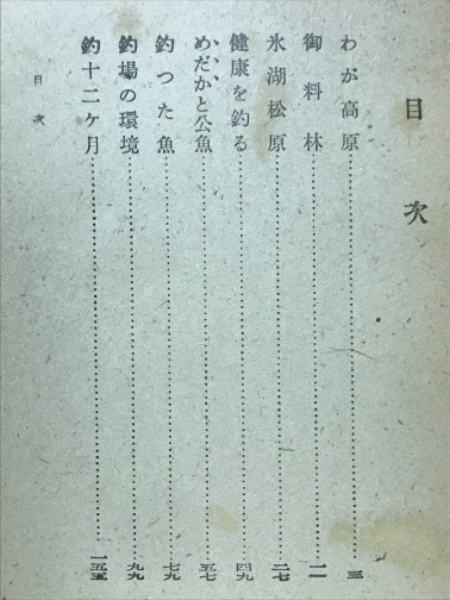 目次
わが高原……三
御料林……一一
氷湖松原……二七
健康を釣る……四九
めだかと公魚……五七
釣つた魚……七九
釣場の環境……九九
釣十二ケ月……一五五
目次